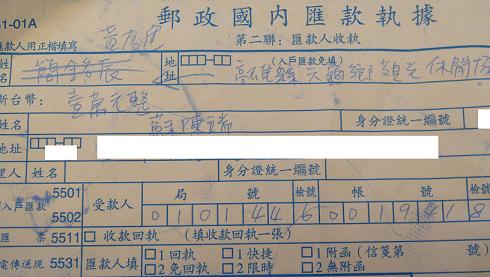 51-01A 郵政國內匯款執據
匯款人用正楷填寫 第二聯：匯款人收執
地址 (入戶匯款免填)
新台幣： 壹萬元整
姓名 陳瑞 身分證統一編號
地址
理人 姓名 身分證統一編號
入戶匯款 5501 5502 受款人 局號 檢號 帳號 檢號
0 1 0 1 4 4 6 0 0 1 9 4 1 8
匯票 5511 □ 收款回執 (填收款回執一張)
電傳送現 5531 匯款人填 □1 回執 □1 快捷 □1 附函 (信箋第 號)
□2 免回執 □2 限時 □2 無附函